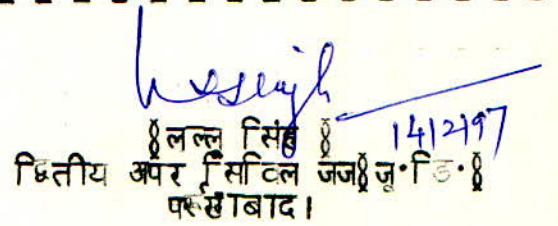 §लल्लू सिंह§
14/2/97
द्वितीय अपर सिविल जज§जू·डि·§
फर्रुखाबाद।